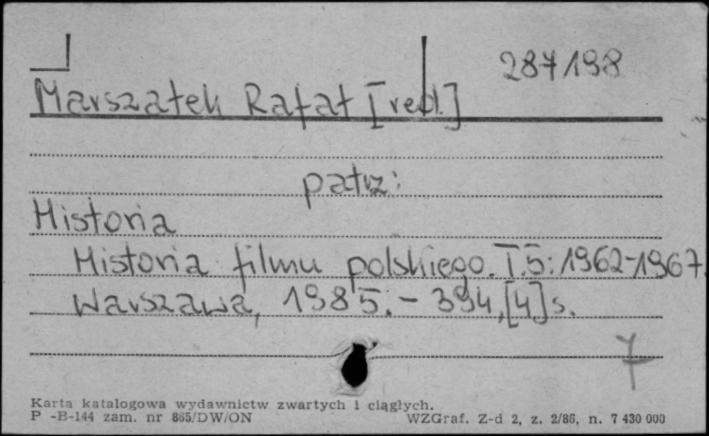 287198
Marszałek Rafał [red.]
patrz:
Historia
Historia filmu polskiego. T.5: 1962-1967.
Warszawa, 1985. - 394,[4] s.
7
Karta katalogowa wydawnictw zwartych i ciągłych.
P -B-144 zam. nr 865/DW/ON WZGraf. Z-d 2, z. 2/86, n. 7 430 000